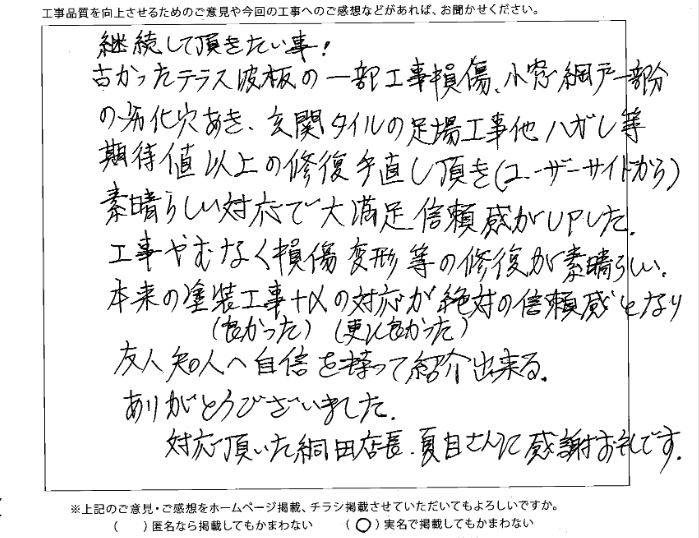 工事品質を向上させるためのご意見や今回の工事へのご感想などがあれば、お聞かせください。
継続して頂きたい事!
古かったテラス波板の一部工事損傷、小窓網戸一部分
の劣化穴あき、玄関タイルの足場工事他ハガレ等
期待値以上の修復手直し頂き(ユーザーサイドから)
素晴らしい対応で大満足信頼感がUPした.
工事やむなく損傷変形等の修復が素晴らしい.
本来の塗装工事+αの対応が絶対の信頼感となり
(良かった) (更に良かった)
友人知人へ自信を持って紹介出来る.
ありがとうございました.
対応頂いた 田店長、夏目さんに感謝 です.
※上記のご意見・ご感想をホームページ掲載、チラシ掲載させていただいてもよろしいですか。
( )匿名なら掲載してもかまわない (○)実名で掲載してもかまわない